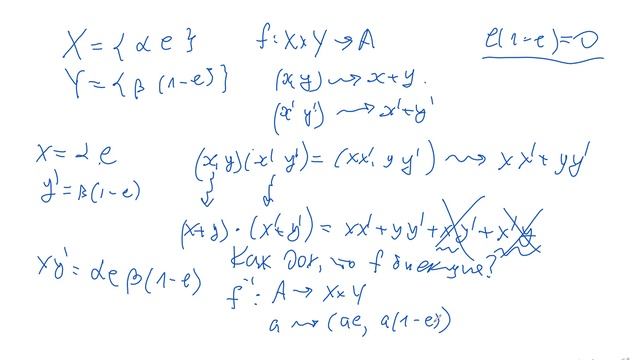 X = { α e }
Y = { β (1-e) }
f: X×Y → A
(x,y) ⇝ x+y.
(x' y') ⇝ x'+y'
e(1-e)=0
x = α e
y' = β(1-e)
(x,y)(x' y') = (xx', yy') ⇝ xx'+yy'
(x+y)·(x'+y') = xx'+yy'+xy'+x'y
xy' = αeβ(1-e)
Как док, что f биекция?
f⁻¹: A → X×Y
a ⇝ (ae, a(1-e))